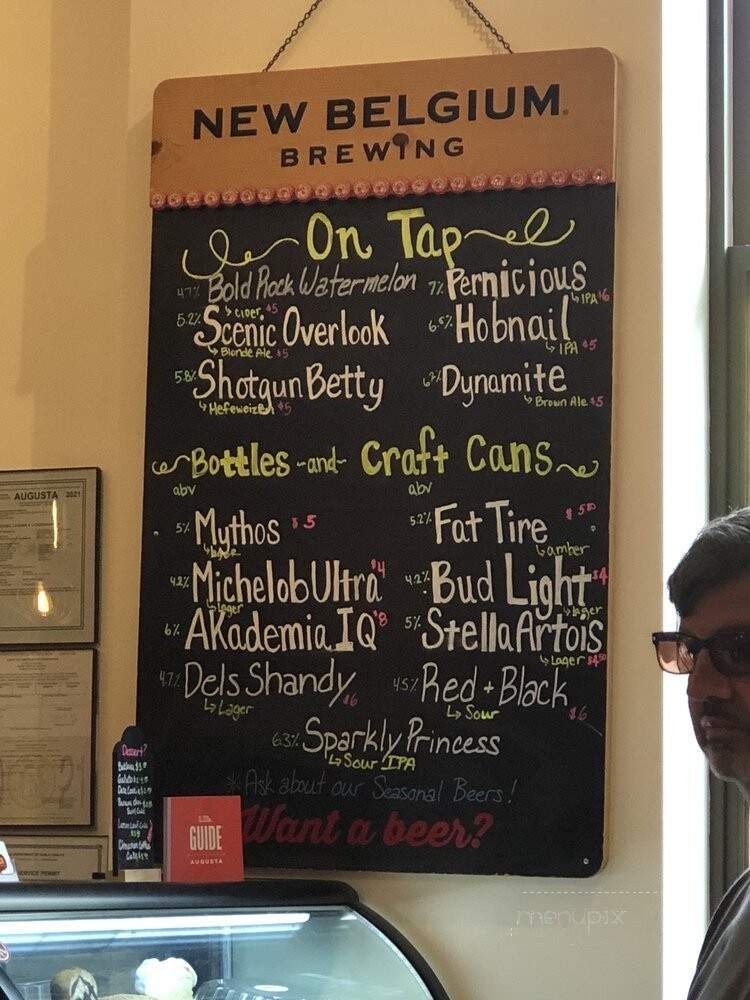 NEW BELGIUM
BREWING
On Tap
4.7% Bold Rock Watermelon
↳ Cider $5
7% Pernicious
↳ IPA $6
5.2% Scenic Overlook
↳ Blonde Ale $5
Hobnail
↳ IPA $5
5.8% Shotgun Betty
↳ Hefeweizen $5
Dynamite
↳ Brown Ale $5
Bottles -and- Craft Cans
abv
abv
5% Mythos $5
↳ lager
5.2% Fat Tire
↳ amber
4.2% Michelob Ultra $4
↳ Lager
4.2% Bud Light $4
↳ lager
6% AKademia IQ $8
5% Stella Artois
↳ Lager $4.50
4.7% Dels Shandy $6
↳ Lager
4.5% Red + Black $6
↳ Sour
6.3% Sparkly Princess
↳ Sour IPA
*Ask about our Seasonal Beers!
Want a beer?
AUGUSTA 2021
SERVICE PERMIT
Dessert?
GUIDE
AUGUSTA
menupix